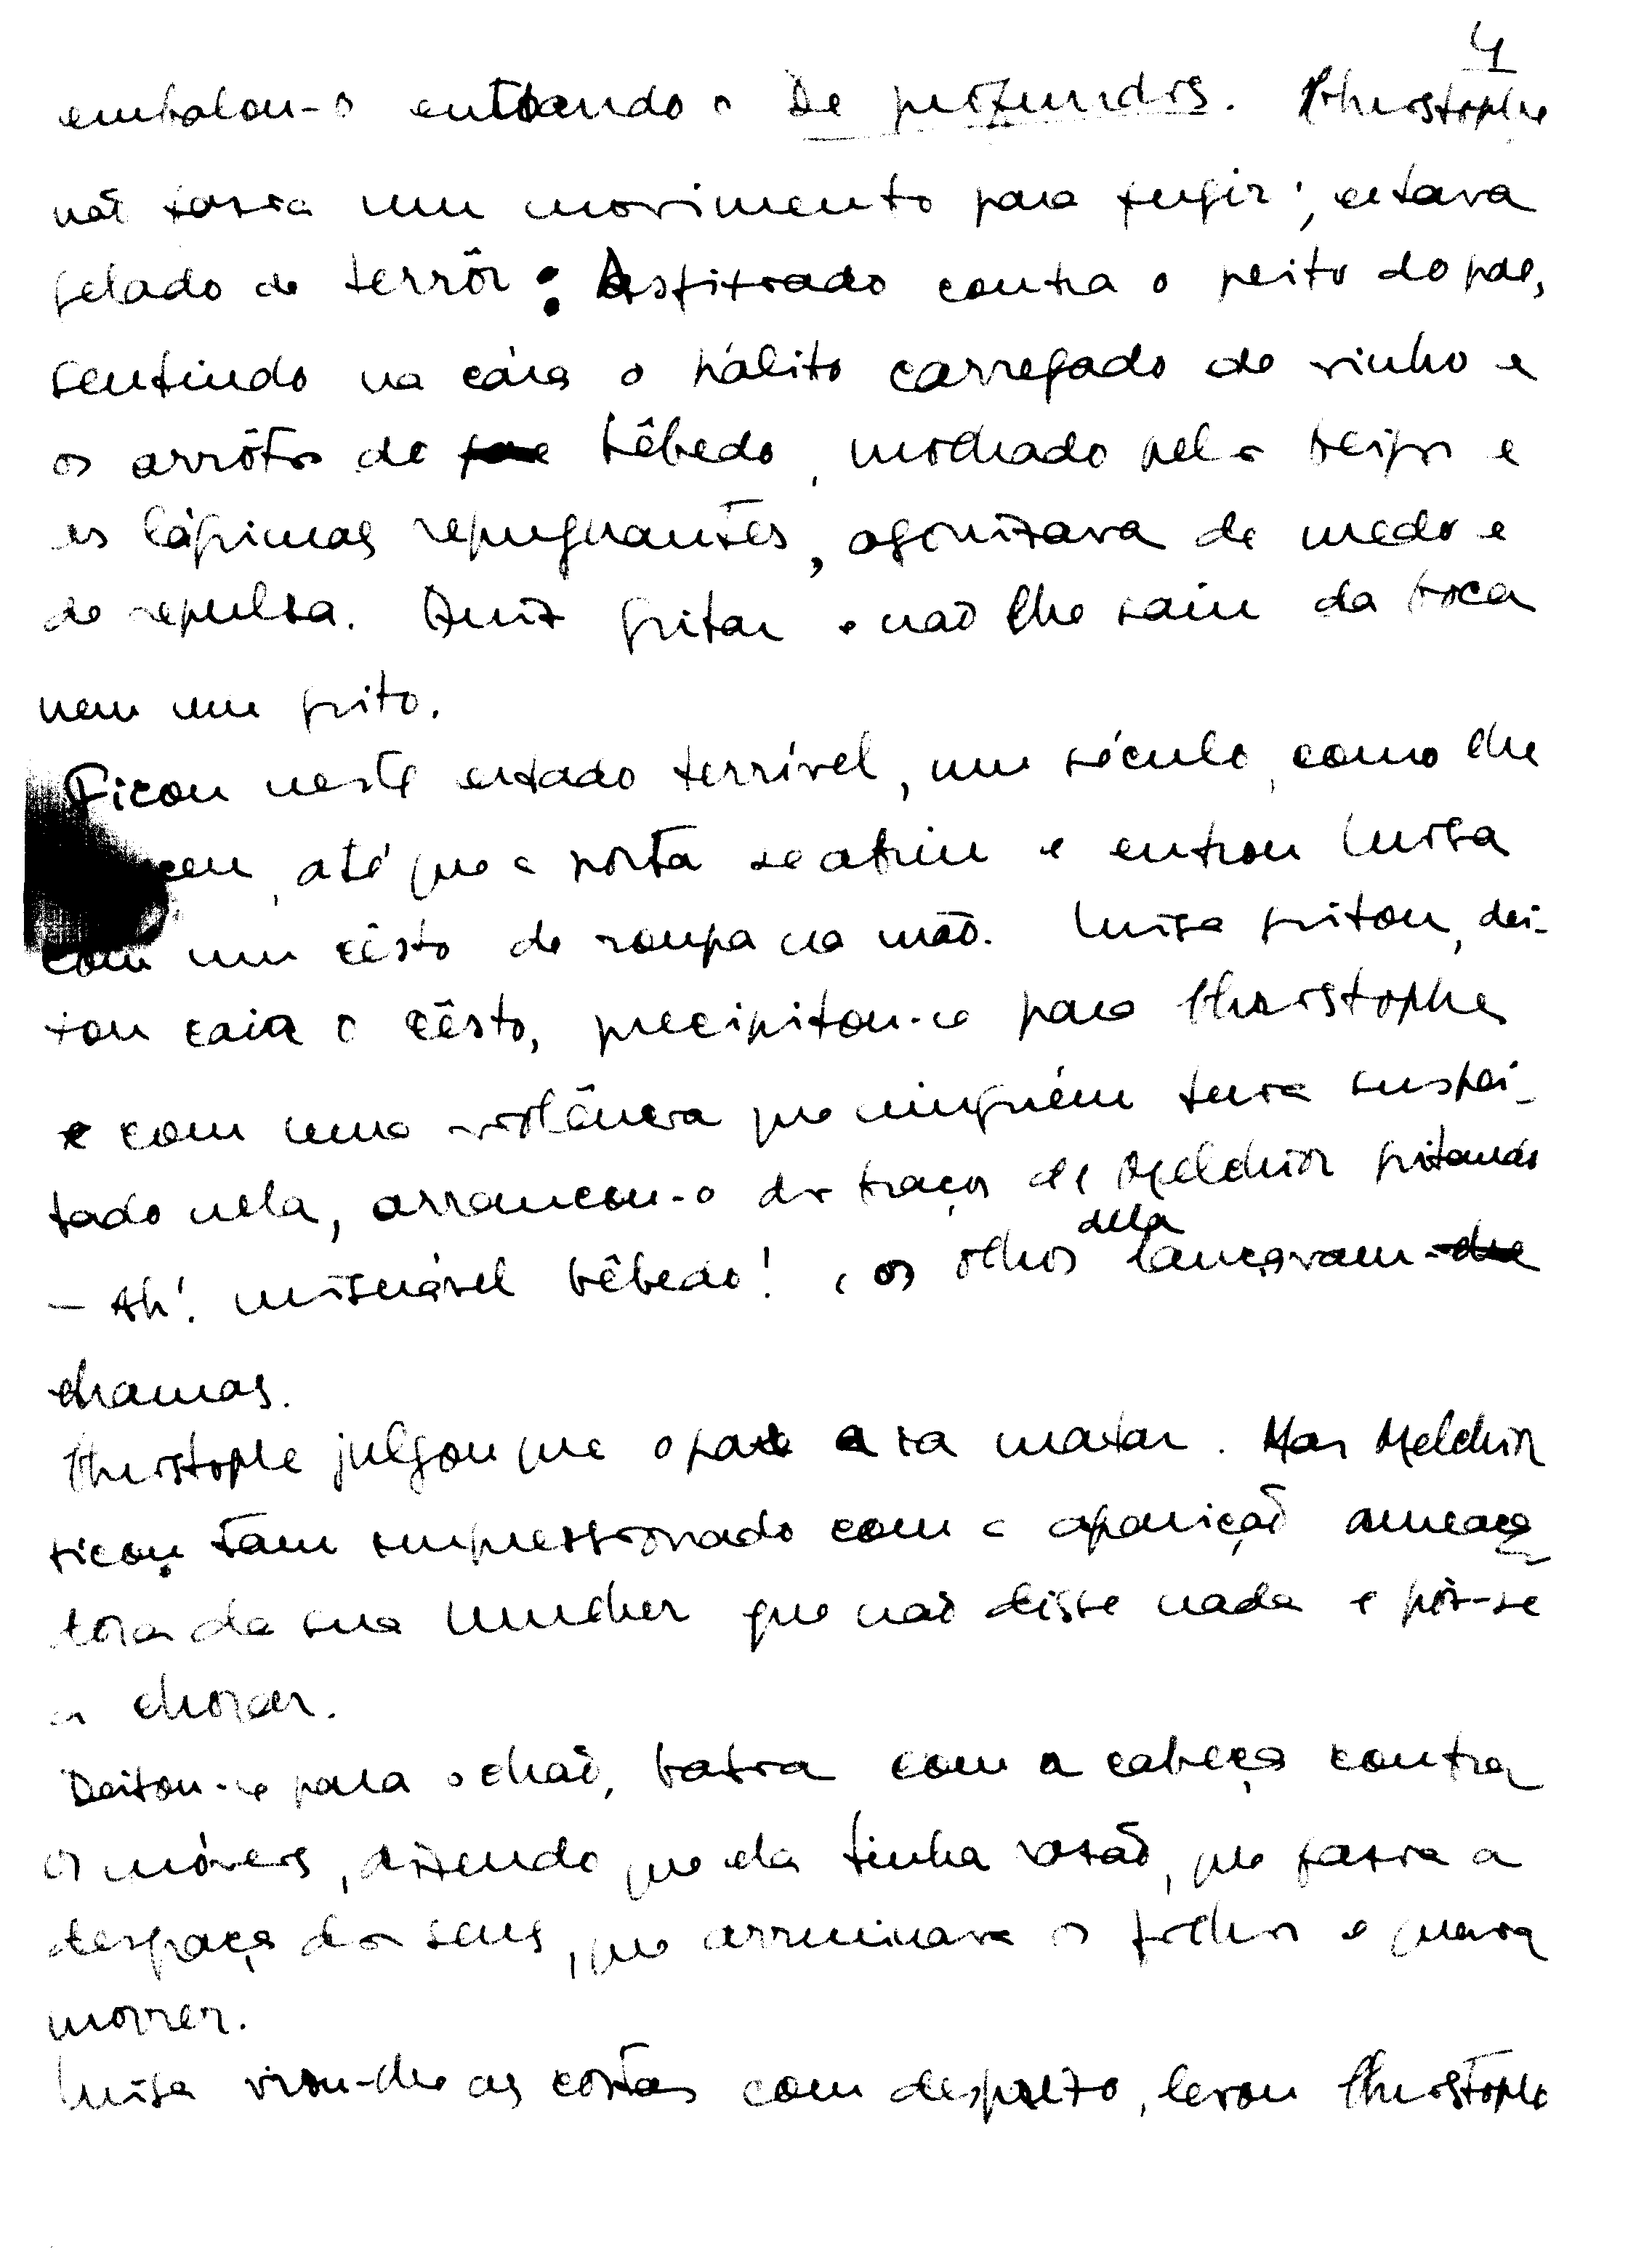 4
embalou-o entoando o De profundis. Christophe
não fazia um movimento para fugir; estava
gelado de terrôr: Asfixiado contra o peito do pae,
sentindo na cára o hálito carregado de vinho e
os arrôtos de bêbedo, molhado pelos beijos e
as lágrimas repugnantes, agonizava de medo e
de repulsa. Quiz gritar e não lhe saiu da boca
nem um grito.
Ficou neste estado terrível, um século, como lhe
ceu, até que a porta se abriu e entrou Luisa
com um cêsto de roupa na mão. Luisa gritou, dei-
tou caia o cêsto, precipitou-se para Christophe
e com uma violência que ninguém teria suspei-
tado nela, arrancou-o dos braços de Melchior gritando
- Ah! miserável bêbedo! e os olhos della lançavam-lhe
chamas.
Christophe julgou que o pae a ia matar. Mas Melchior
ficou tam impressionado com a aparição ameaça
tora da sua mulher que não disse nada e pôs-se
a chorar.
Deitou-se para o chão, batia com a cabeça contra
os móveis, dizendo que ela tinha razão, que fazia a
desgraça dos seus, que arruinava os filhos e queria
morrer.
Luisa virou-lhe as costas com desprezo, levou Christophe